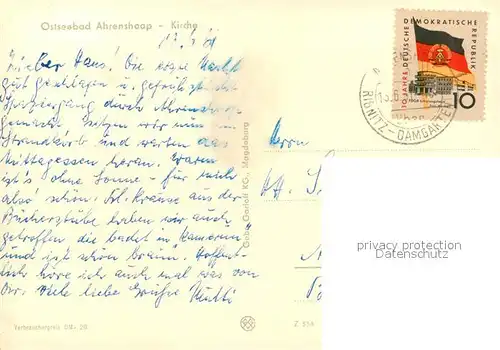 Ostseebad Ahrenshoop - Kirche
Lieber Hans! Die erste Nacht
gut geschlafen u. gefrühstückt
Spaziergang durch Ahrenshoop
gemacht sitzen wir nun im
Strandkorb und warten das
Mittagessen heran. Warm
ist's ohne Sonne - für mich
also schön. Frl. Krause aus der
Bücherstube haben wir auch
getroffen, die badet in Kamerun
und ist schon braun. Hoffent-
lich höre ich auch mal was von
Dir. Viele liebe Grüße Mutti
Verbraucherpreis DM -,20
Gebr. Garloff KG., Magdeburg
Z 554
Herrn
10 JAHRE DEUTSCHE DEMOKRATISCHE REPUBLIK
10
RIBNITZ-DAMGARTEN
privacy protection
Datenschutz